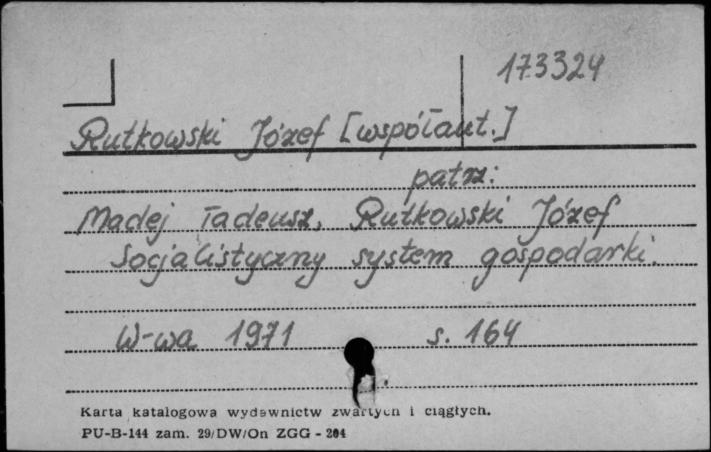 173324
Rutkowski Józef [współaut.]
patrz:
Madej Tadeusz, Rutkowski Józef
Socjalistyczny system gospodarki.
W-wa 1971 s. 164
Karta katalogowa wydawnictw zwartych i ciągłych.
PU-B-144 zam. 29/DW/On ZGG - 204